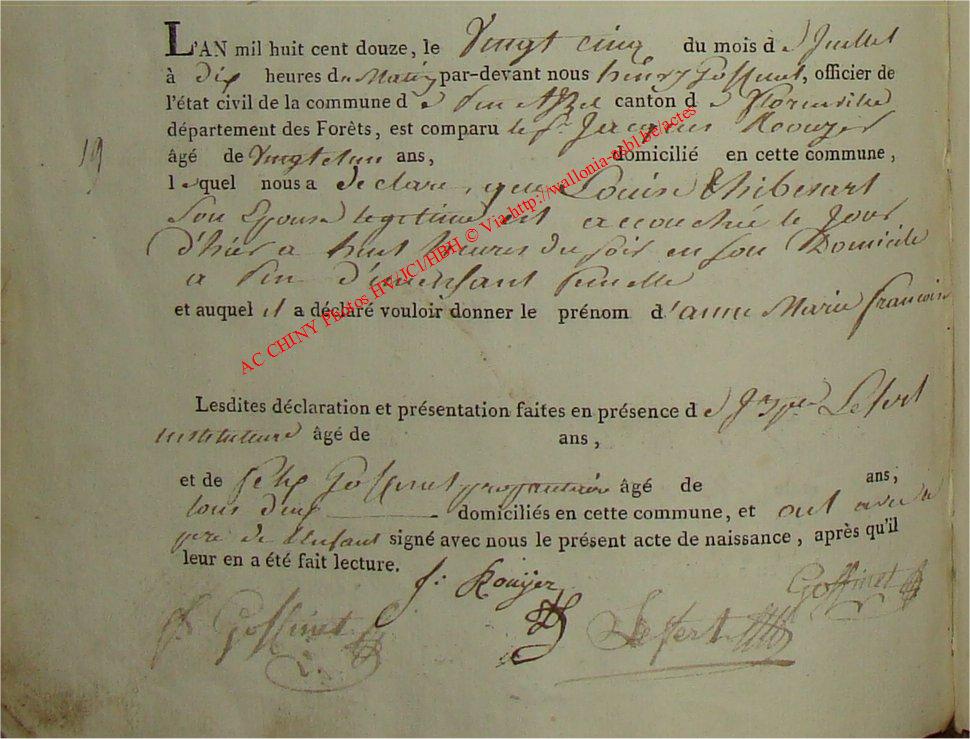 19
L'AN mil huit cent douze, le Vingt cinq du mois de Juillet
à dix heures du Matin par-devant nous henry Goffinet, officier de
l'état civil de la commune de Pin canton de Florenville
département des Forêts, est comparu le Sr Jacques Rouyer
âgé de Vingt et un ans, domicilié en cette commune,
lequel nous a declaré, que Louise thibesart
Son Epouse legitime est accouchée le Jour
d'hier a huit heures du soir en son Domicile
a Pin d'un enfant femelle
et auquel il a déclaré vouloir donner le prénom d'anne Marie francoise
Lesdites déclaration et présentation faites en présence de Lefert
instituteur âgé de ans,
et de felix Goffinet proprietaire âgé de ans,
tous deux domiciliés en cette commune, et ont avec le
pere de l'Enfant signé avec nous le présent acte de naissance, après qu'il
leur en a été fait lecture.
J: Rouyer
Goffinet
f. Goffinet
Lefert
AC CHINY Photos HV/JCl/HBH © Via http://wallonia-asbl.be/actes